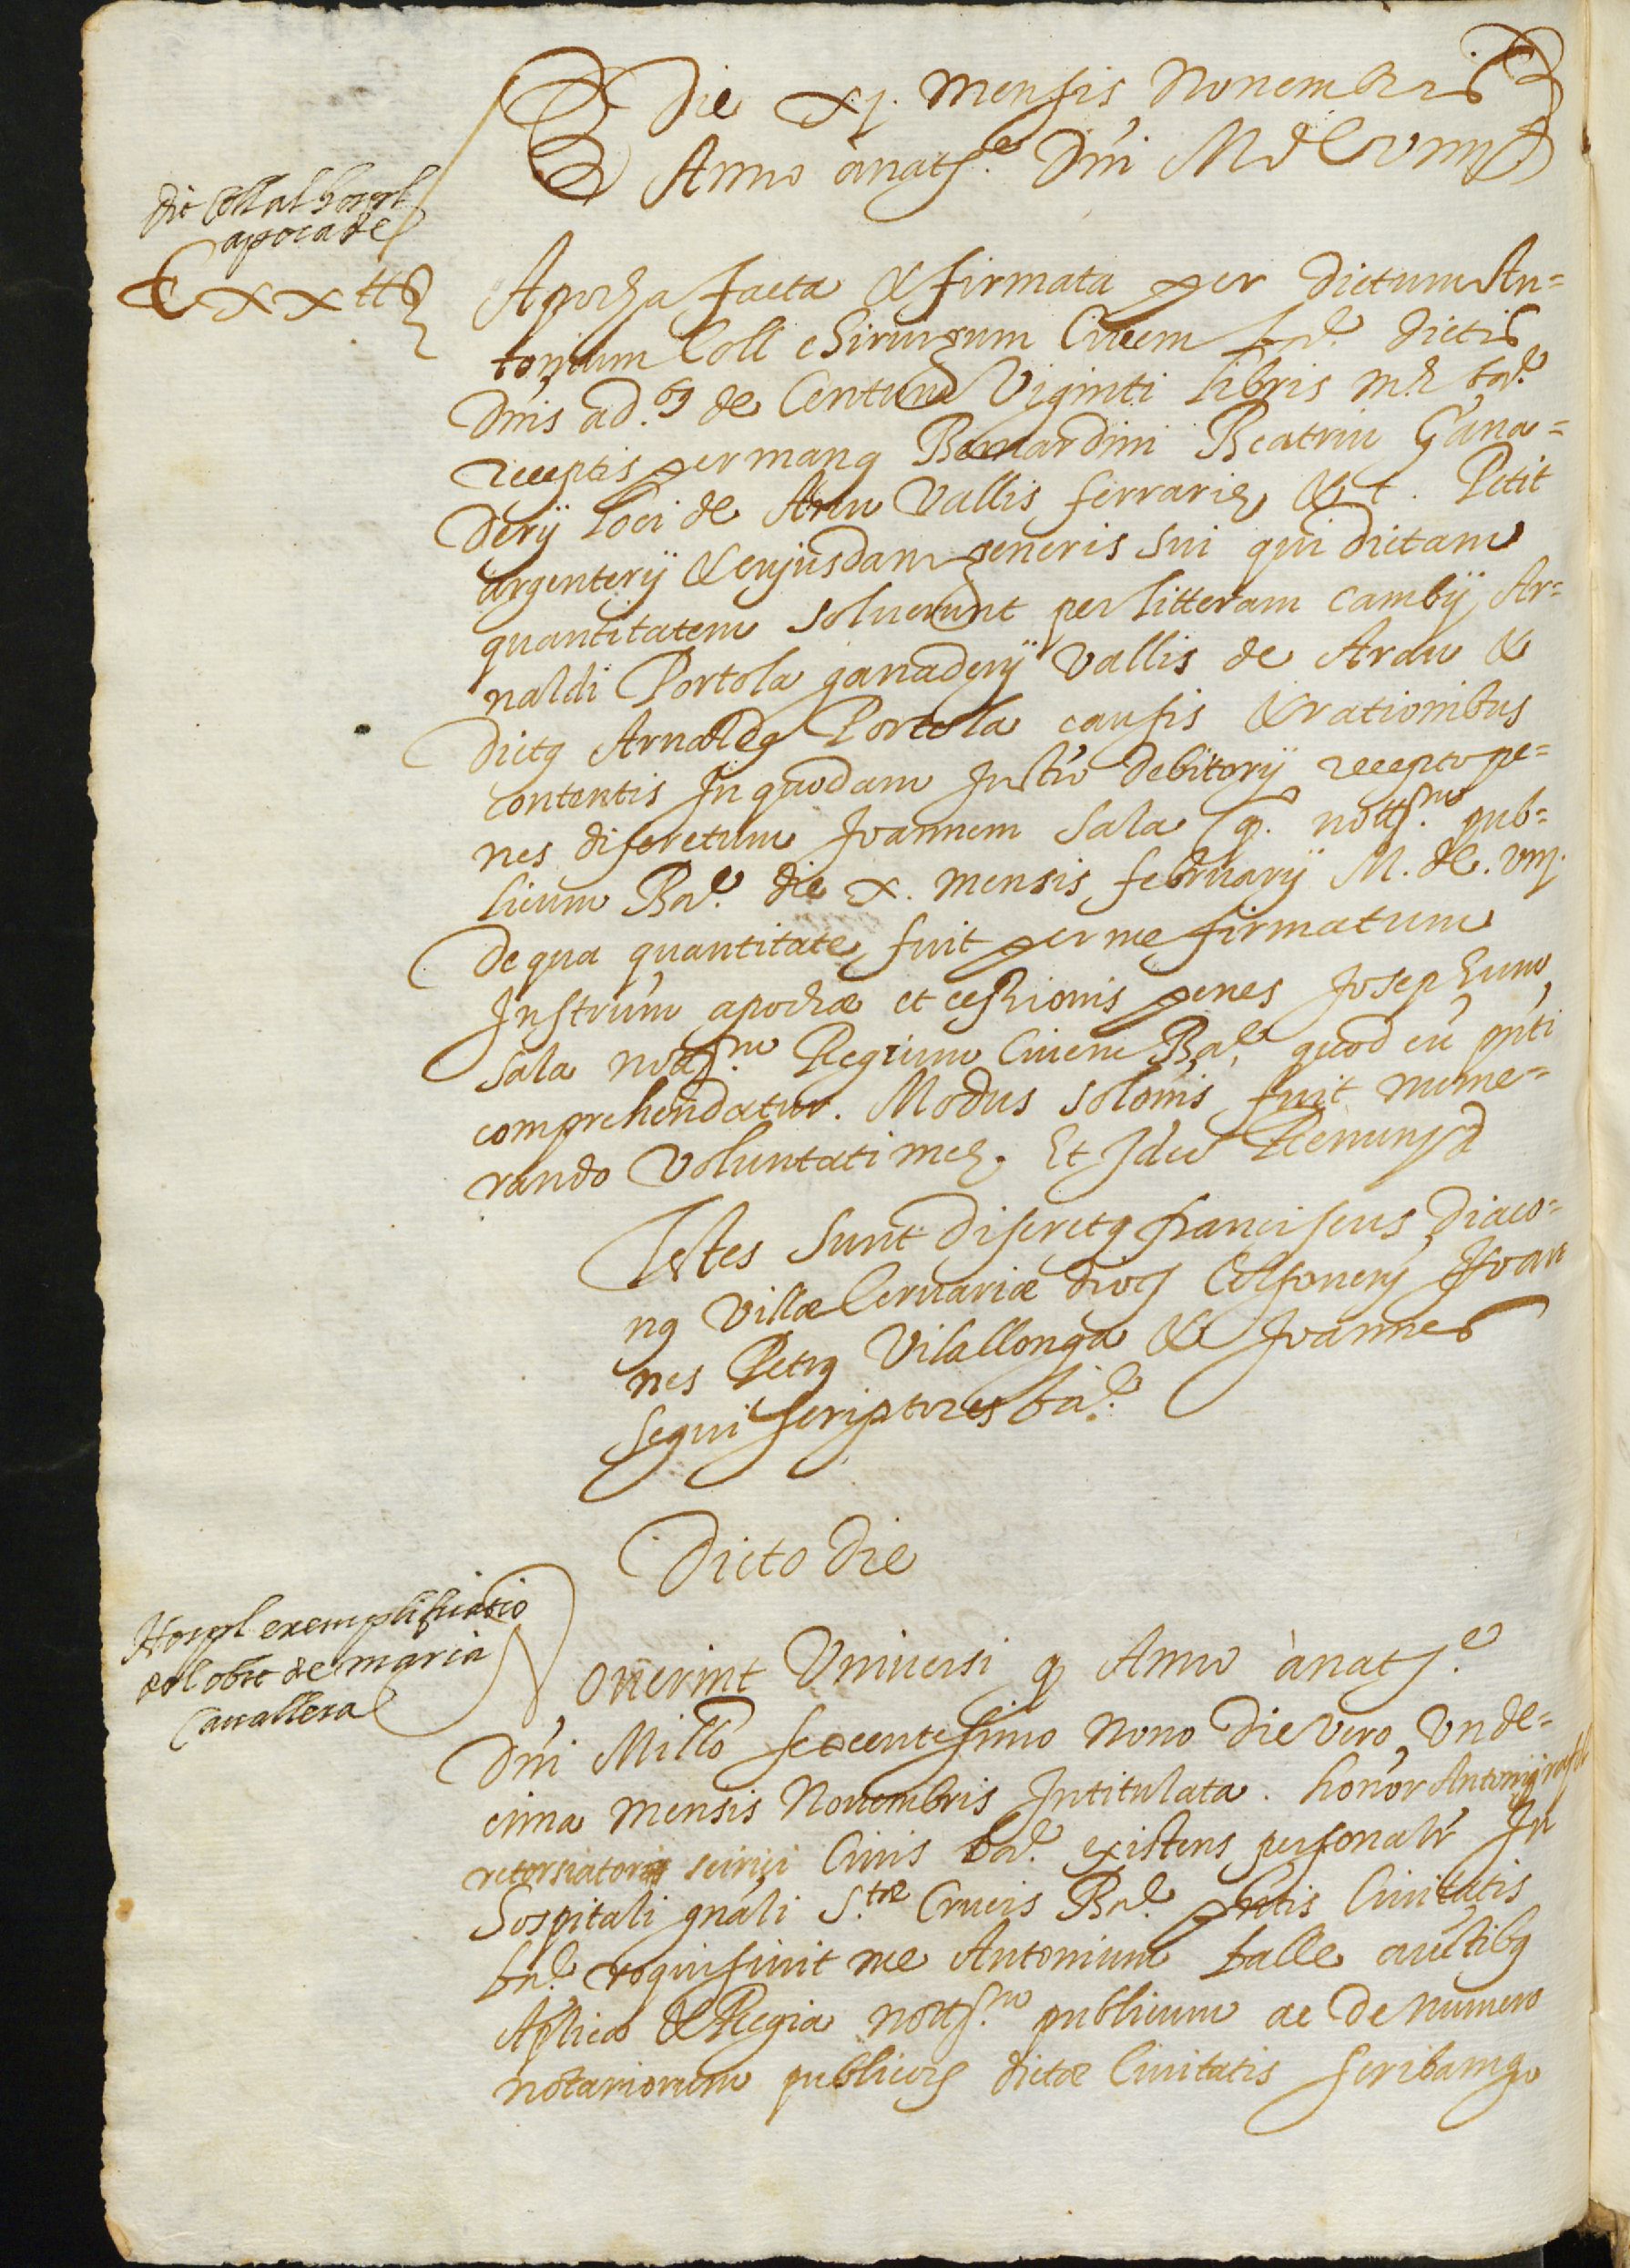 Die xj. Mensis Nouembris
Anno ànatt.e Dñi MdCviiij
Dit Coll al hospl
apoca de
CXX tt
Apocha facta & firmata per dictum An=
tonium Coll chirurgum Ciuem ba.e dictis
Dnis ad.bus de Centum Viginti libris m.e ba.e
receptis per manus Bernardini Beatriu Gana=
derij loci de Areu Vallis ferrariæ & t. Petit
argenterij & cujusdam generis sui qui dictam
quantitatem soluerunt per litteram cambij Ar=
naldi Portola ganaderij Vallis de Aran &
dictus Arnaldus Portola causis & rationibus
contentis In quodam Instrõ debitorij recepto pe=
nes discretum Joannem Sala q. nott.m pub=
licum Ba.e die x. mensis februarij M.dC.viiij.
De qua quantitate fuit per me firmatum
Instrum apochæ et cessionis penes Josephum
Sala nott.m Regium Ciuem Ba.e quod cũ pñti
comprehendatur. Modus solonis fuit nume=
rando Voluntati meæ. Et Ideo Renun
Testes sunt discretus franciscus Diaco=
nus Villæ Ceruariæ dioc Celsonen Joan
nes Petrus Vilallonga & Joannes
Segui scriptores ba.e
Dicto Die
Hospl exemplificatio
del obit de maria
Cauallera
Nouerint Vniuersi q Anno ànatt.e
Dñi Millõ sexcentesimo Nono Die Vero Vnde=
cima Mensis Nouembris Intitulata. honor Antonij
retorsiatoris sirici Ciuis ba.e existens personalr In
Hospitali gnãli S.tæ Crucis Ba.e pñtis Ciuitatis
ba.e requisiuit me Antonium batlle auctibus
Aplica & Regia nott.m publicum ac de numero
notariorum publicor dictæ Ciuitatis scribamq